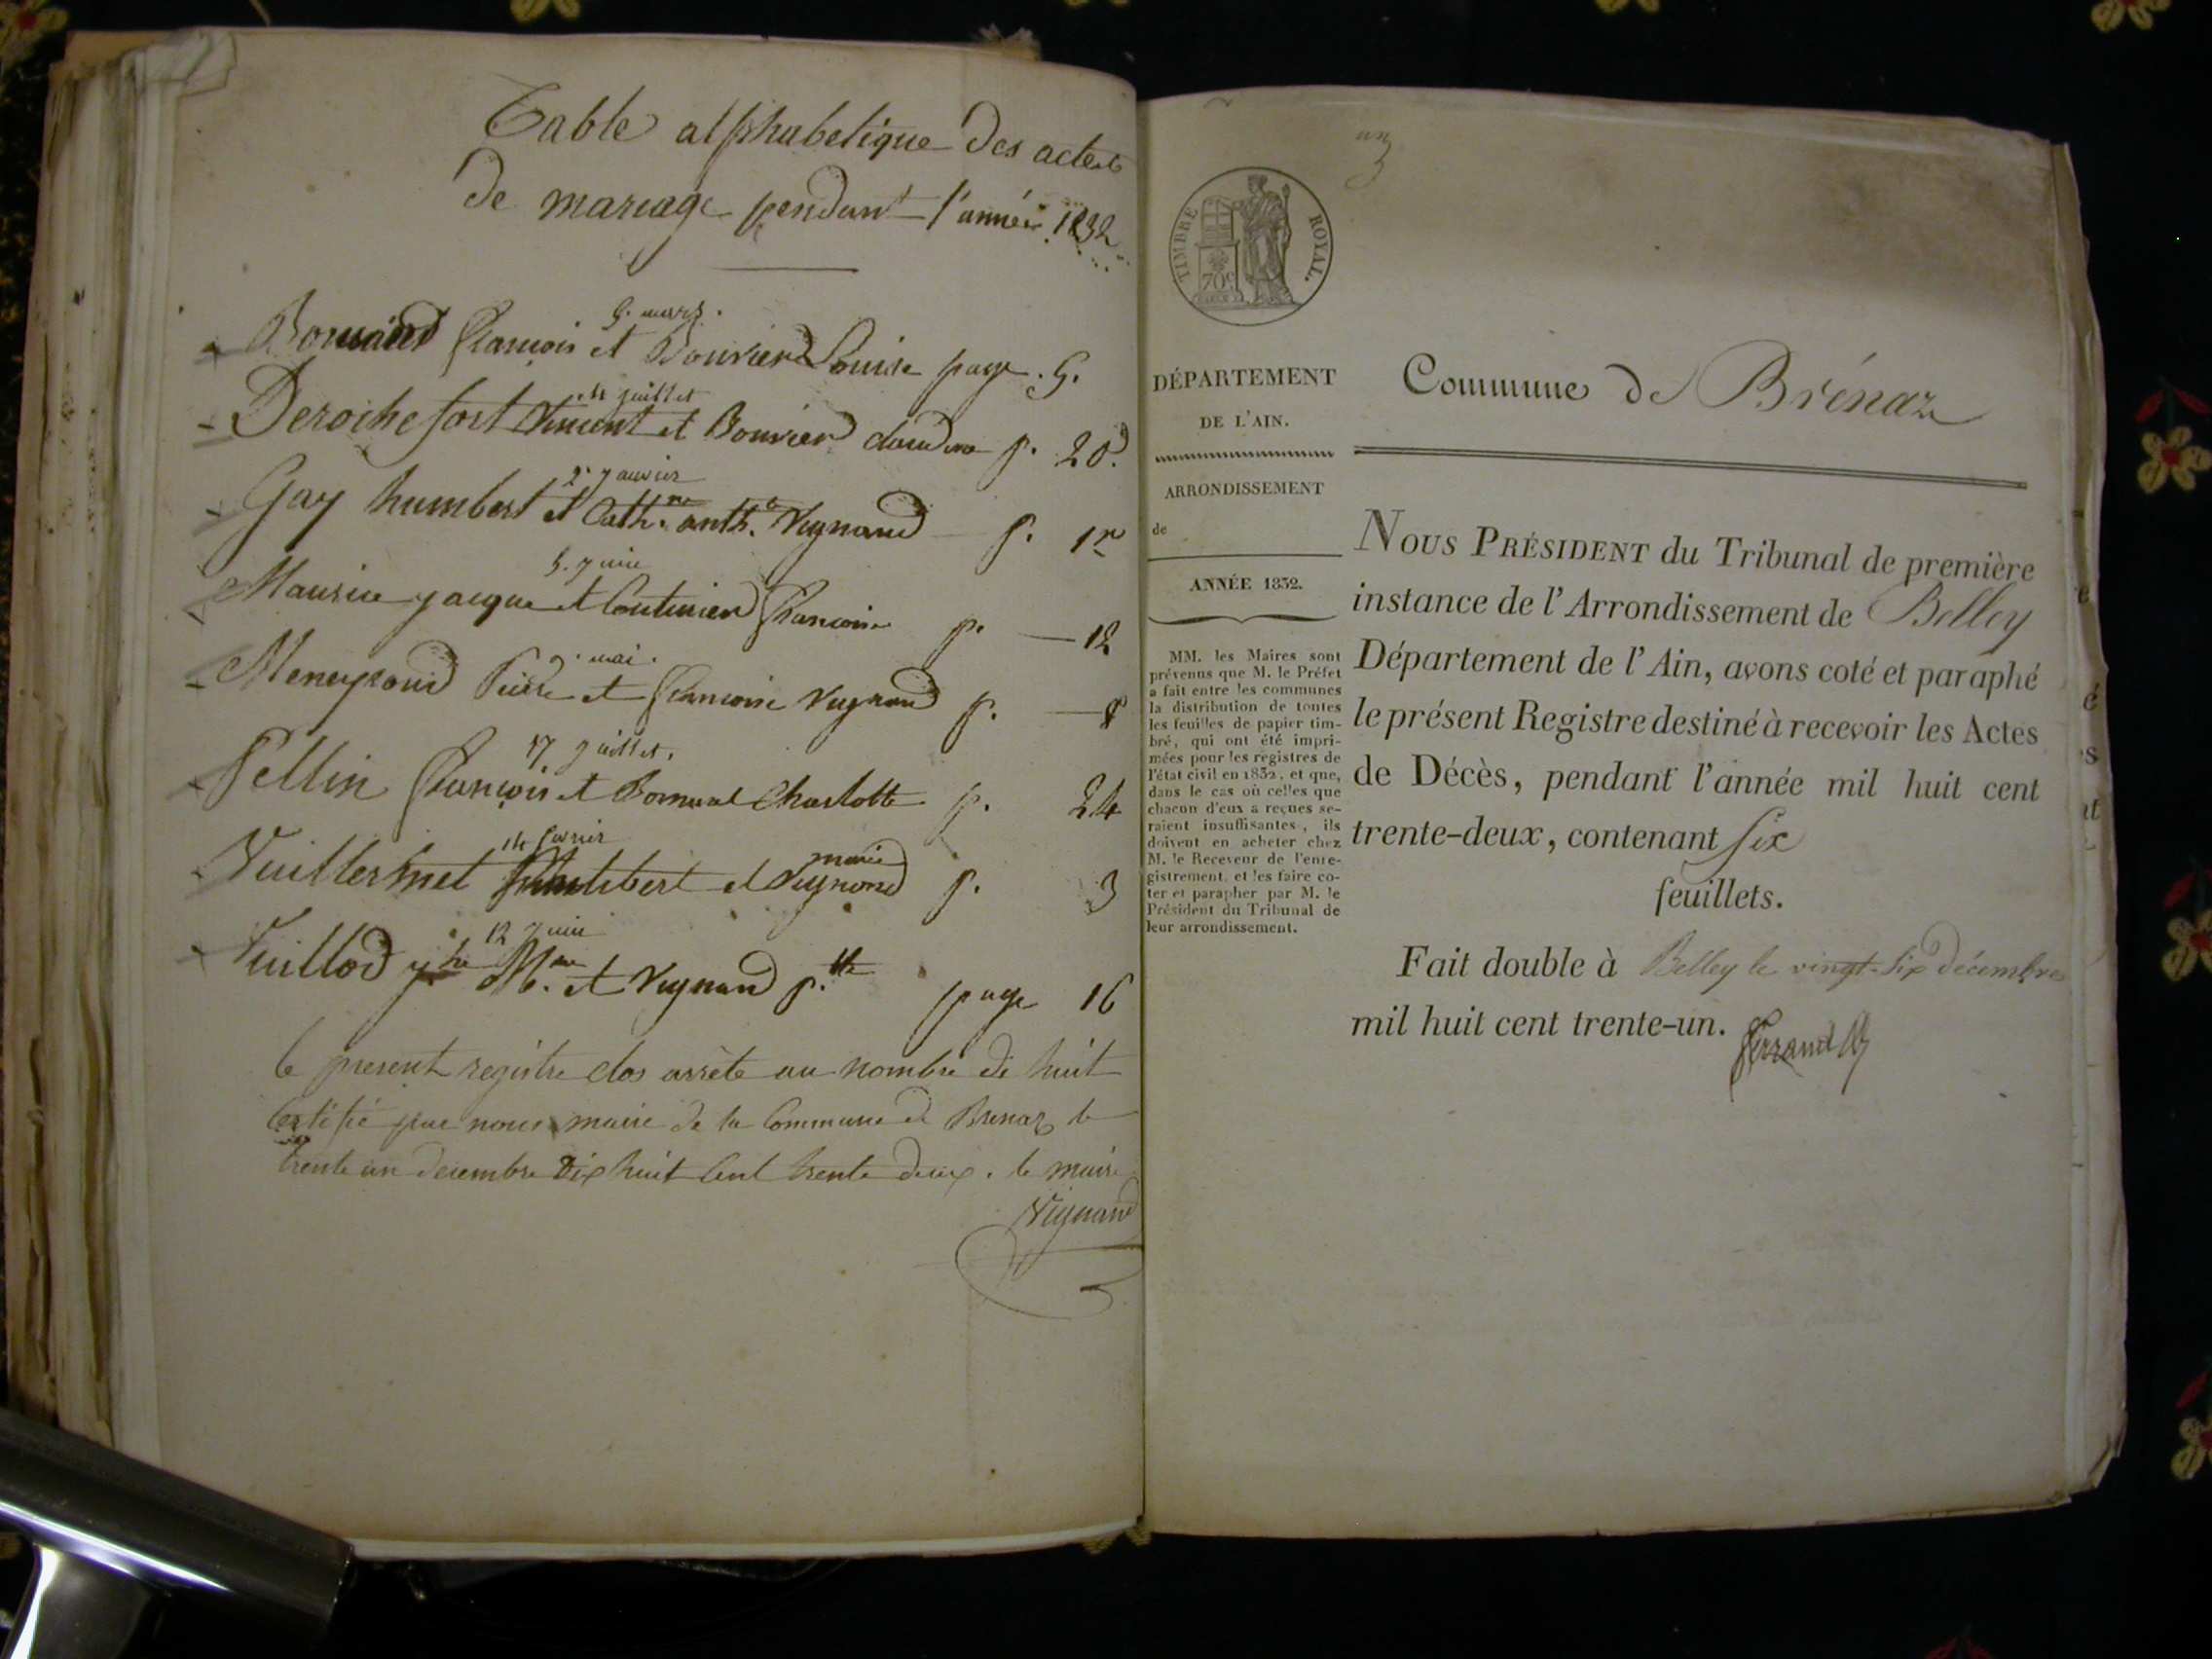 Table alphabetique des actes
de mariage pendant l'année 1832
5. mars.
François et Bouvier Louise page. 5.
11 juillet
Derochefort et Bouvier p. 20.
2. janvier
Gay humbert et Cath.ne anth.e Vugnand p. 1r
5. juin
Maurice jacque et françoise p. 12
mai.
Pierre et françoise Vugnand p. 8
17 juillet.
Pellin françois et Charlotte p. 24
14 fevrier
marie
Vuillermet philibert et Vugnand p. 3
12 juin
Vuillod et Vugnand page 16
le present registre clos arrêté au nombre de huit
Certifié par nous maire de la Commune de Brenaz le
trente un decembre dix huit cent trente deux. le maire
Vugnand
un
TIMBRE ROYAL.
70c
DÉPARTEMENT
DE L'AIN.
ARRONDISSEMENT
de
ANNÉE 1832.
MM. les Maires sont
prévenus que M. le Préfet
a fait entre les communes
la distribution de toutes
les feuilles de papier tim-
bré, qui ont été impri-
mées pour les registres de
l'état civil en 1832, et que,
dans le cas où celles que
chacun d'eux a reçues se-
raient insuffisantes, ils
doivent en acheter chez
M. le Receveur de l'enre-
gistrement, et les faire co-
ter et parapher par M. le
Président du Tribunal de
leur arrondissement.
Commune de Brénaz
NOUS PRÉSIDENT du Tribunal de première
instance de l'Arrondissement de Belley
Département de l'Ain, avons coté et paraphé
le présent Registre destiné à recevoir les Actes
de Décès, pendant l'année mil huit cent
trente-deux, contenant six
feuillets.
Fait double à Belley le vingt-six décembre
mil huit cent trente-un.